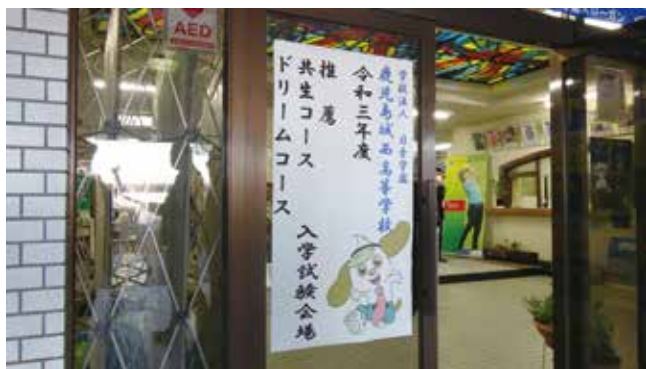 AED
学校法人 日章学園
鹿児島城西高等学校
令和三年度
推薦
共生コース
ドリームコース
入学試験会場